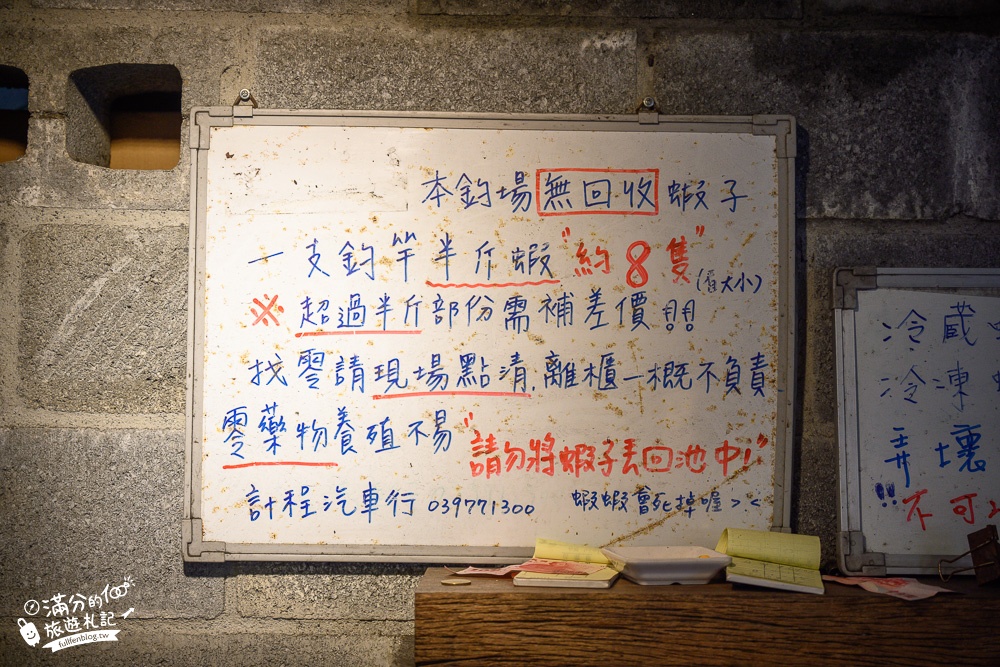 本釣場無回收蝦子
一支釣竿半斤蝦"約8隻"(看大小)
※超過半斤部份需補差價!!!
找零請現場點清,離櫃一概不負責.
零藥物養殖不易"請勿將蝦子丟回池中!"
計程汽車行 039771300 蝦蝦會死掉喔>.<
冷藏
冷凍
弄壞
!!不可
滿分的
旅遊札記
fullfenblog.tw